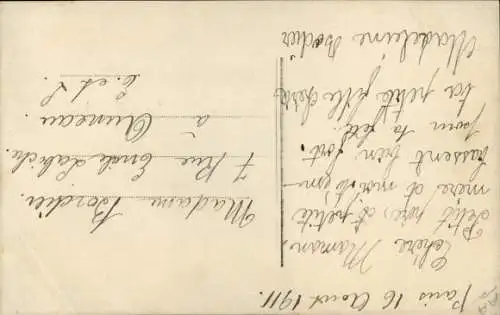 Paris 16 Aout 1911.
Chère Maman,
Petit père, et petite
mère et em-
brassent bien fort
pour ta fête.
ta petite fille
Madeleine Bordier
Madame
Bordier
7 Rue Emile Labiche.
à
Auneau.
E. et L.